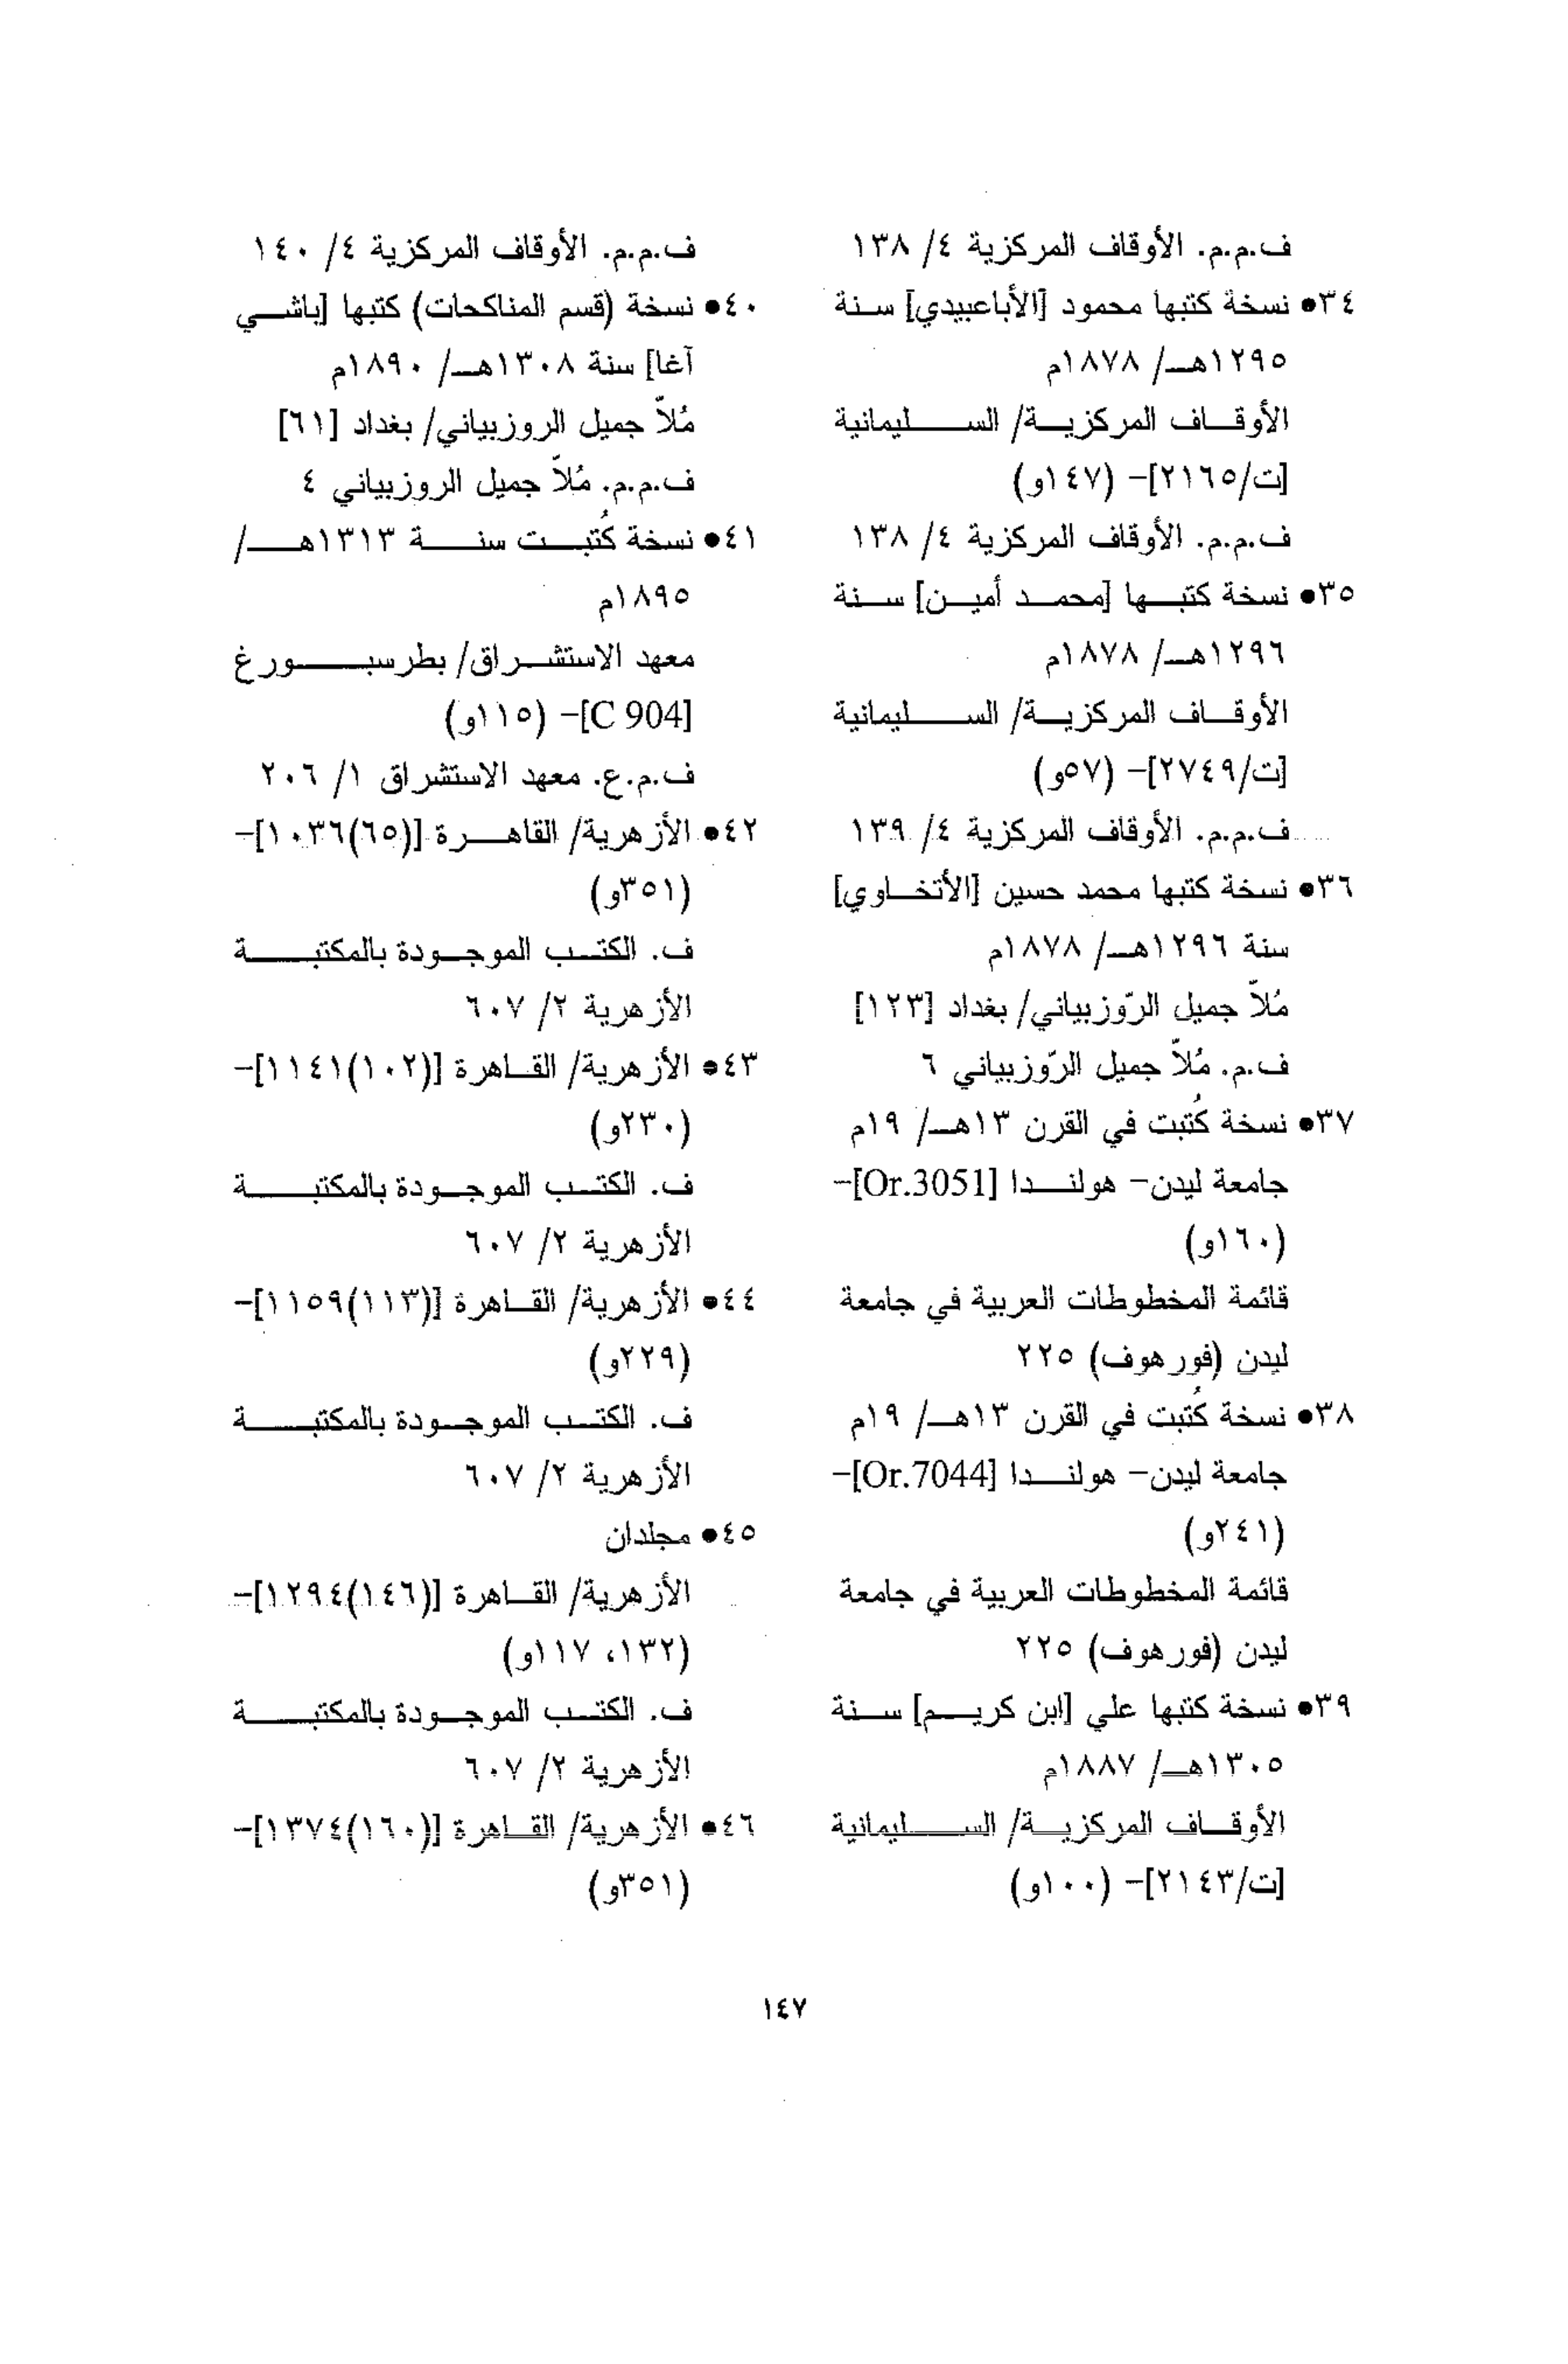 ف.م.م. الأوقاف المركزية ٤/ ١٣٨
٣٤● نسخة كتبها محمود [الأباعبيدي] سنة
١٢٩٥هـ/ ١٨٧٨م
الأوقاف المركزية/ السليمانية
[ت/٢١٦٥]– (١٤٧و)
ف.م.م. الأوقاف المركزية ٤/ ١٣٨
٣٥● نسخة كتبها [محمد أمين] سنة
١٢٩٦هـ/ ١٨٧٨م
الأوقاف المركزية/ السليمانية
[ت/٢٧٤٩]– (٥٧و)
ف.م.م. الأوقاف المركزية ٤/ ١٣٩
٣٦● نسخة كتبها محمد حسين [الأتخاوي]
سنة ١٢٩٦هـ/ ١٨٧٨م
مُلاّ جميل الرّوزبياني/ بغداد [١٢٣]
ف.م. مُلاّ جميل الرّوزبياني ٦
٣٧● نسخة كُتبت في القرن ١٣هـ/ ١٩م
جامعة ليدن– هولندا [Or.3051]–
(١٦٠و)
قائمة المخطوطات العربية في جامعة
ليدن (فورهوف) ٢٢٥
٣٨● نسخة كُتبت في القرن ١٣هـ/ ١٩م
جامعة ليدن– هولندا [Or.7044]–
(٢٤١و)
قائمة المخطوطات العربية في جامعة
ليدن (فورهوف) ٢٢٥
٣٩● نسخة كتبها علي [ابن كريم] سنة
١٣٠٥هـ/ ١٨٨٧م
الأوقاف المركزية/ السليمانية
[ت/٢١٤٣]– (١٠٠و)
ف.م.م. الأوقاف المركزية ٤/ ١٤٠
٤٠● نسخة (قسم المناكحات) كتبها [باشي
آغا] سنة ١٣٠٨هـ/ ١٨٩٠م
مُلاّ جميل الروزبياني/ بغداد [٦١]
ف.م.م. مُلاّ جميل الروزبياني ٤
٤١● نسخة كُتبت سنة ١٣١٣هـ/
١٨٩٥م
معهد الاستشراق/ بطرسبورغ
[C 904]– (١١٥و)
ف.م.ع. معهد الاستشراق ١/ ٢٠٦
٤٢● الأزهرية/ القاهرة [(٦٥)١٠٣٦]–
(٣٥١و)
ف. الكتب الموجودة بالمكتبة
الأزهرية ٢/ ٦٠٧
٤٣● الأزهرية/ القاهرة [(١٠٢)١١٤١]–
(٢٣٠و)
ف. الكتب الموجودة بالمكتبة
الأزهرية ٢/ ٦٠٧
٤٤● الأزهرية/ القاهرة [(١١٣)١١٥٩]–
(٢٢٩و)
ف. الكتب الموجودة بالمكتبة
الأزهرية ٢/ ٦٠٧
٤٥● مجلدان
الأزهرية/ القاهرة [(١٤٦)١٢٩٤]–
(١٣٢، ١١٧و)
ف. الكتب الموجودة بالمكتبة
الأزهرية ٢/ ٦٠٧
٤٦● الأزهرية/ القاهرة [(١٦٠)١٣٧٤]–
(٣٥١و)
١٤٧